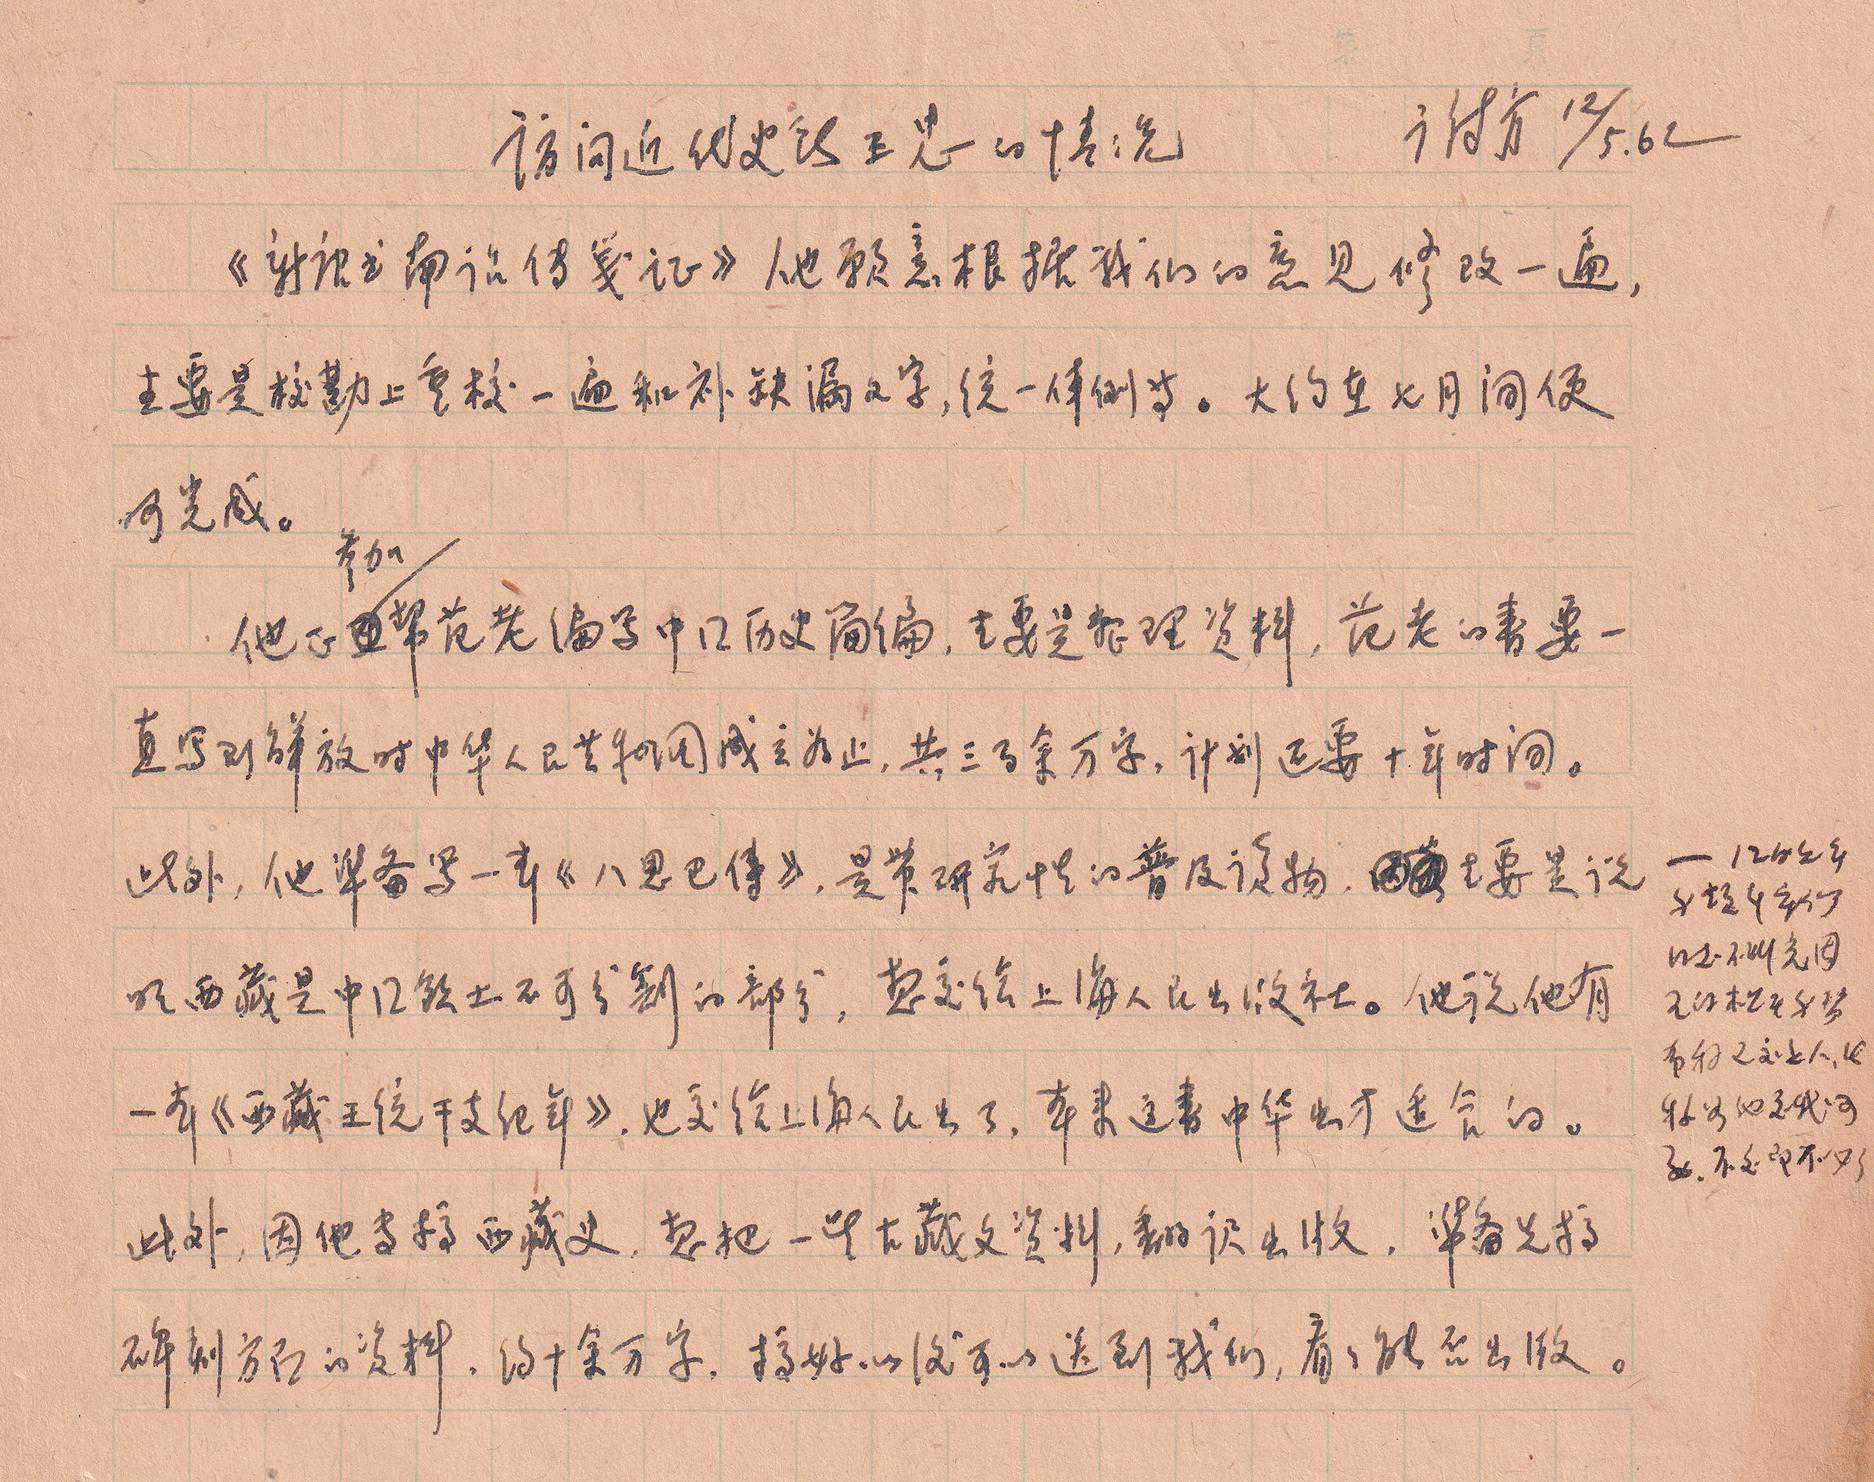 访问近代史所王忠的情况
谢方 12/5.62
《新唐书南诏传笺证》他愿意根据我们的意见修改一遍，
主要是校勘上重校一遍和补缺漏文字，统一体例等。大约在七月间便
可完成。
参加
他正帮范老编写中囗历史简编，主要是整理资料，范老的书要一
直写到解放时中华人民共和国成立为止，共三百余万字，计划还要十年时间。
此外，他准备写一本《八思巴传》，是带研究性的普及读物，主要是说
明西藏是中囗领土不可分割的部分，想交给上海人民出版社。他说他有
一本《西藏王统干支纪年》，也交给上海人民出了，本来这书中华出才适合的。
此外，因他专搞西藏史，想把一些古藏文资料，翻译出版，准备先搞
碑刻方面的资料，约十余万字，搞好以后可以送到我们，看看能否出版。